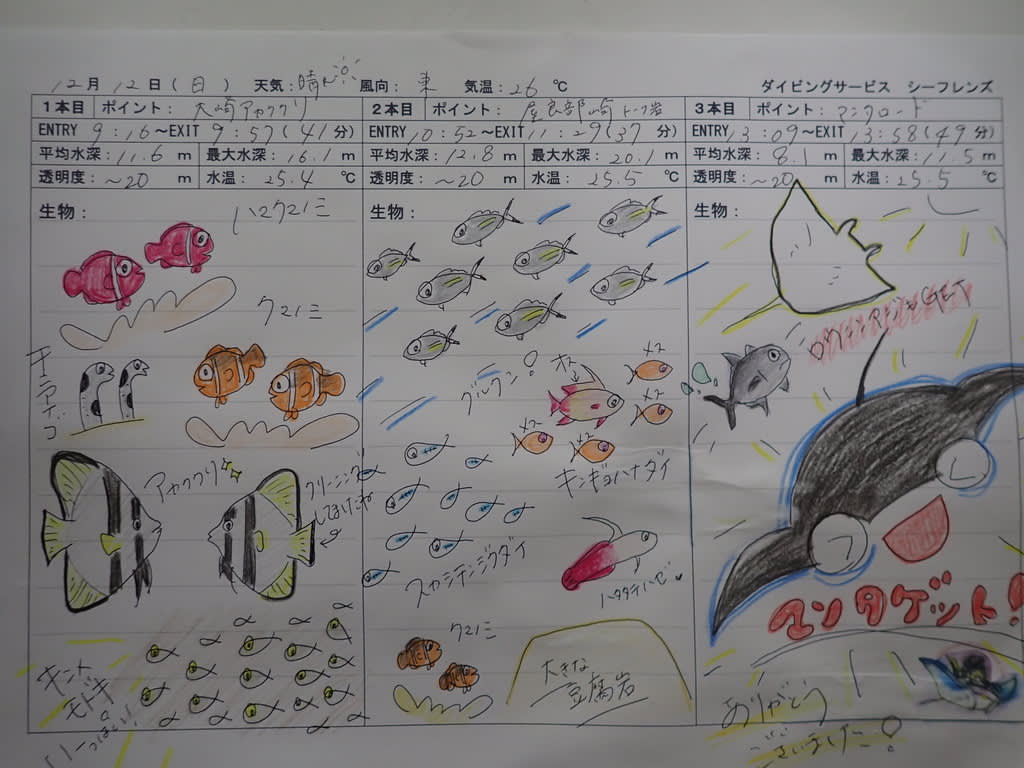 12月12日(日) 天気:晴れ 風向:東 気温:26℃ ダイビングサービス シーフレンズ
1本目 ポイント:大崎アカククリ
ENTRY 9:16~EXIT 9:57(41分)
平均水深:11.6m 最大水深:16.1m
透明度:~20m 水温:25.4℃
生物:
ハマクマノミ
クマノミ
チンアナゴ
アカククリ
クリーニング
してほしいわ
キンメ
モドキ
いーっぱい!
2本目 ポイント:屋良部崎トーフ岩
ENTRY 10:52~EXIT 11:29(37分)
平均水深:12.8m 最大水深:20.1m
透明度:~20m 水温:25.5℃
生物:
グルクン!
オス
×2
×2
×2
×2
キンギョハナダイ
スカシテンジクダイ
ハタタテハゼ
クマノミ
大きな
豆腐岩
3本目 ポイント:マンタロード
ENTRY 13:09~EXIT 13:58(49分)
平均水深:8.1m 最大水深:11.5m
透明度:~20m 水温:25.5℃
生物:
GET
マンタゲット!
ありがとう
ございました!